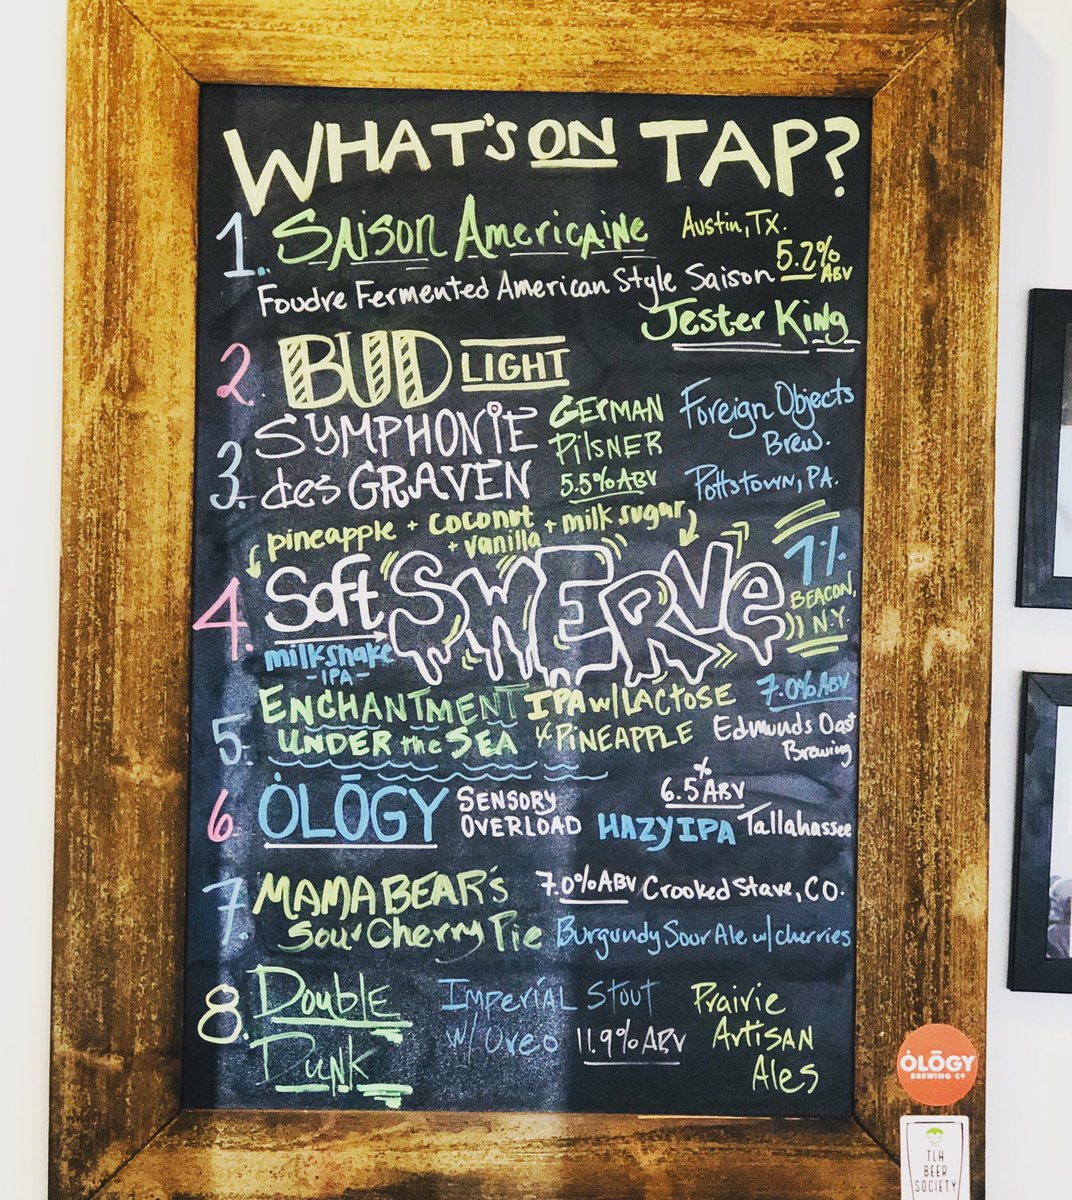 WHAT'S ON TAP?
1. SAISON AMERICAINE Austin, TX.
5.2% ABV
Foudre Fermented American Style Saison
Jester King
2. BUD LIGHT
3. SYMPHONIE des GRAVEN
GERMAN PILSNER
5.5% ABV
Foreign Objects Brew.
Pottstown, PA.
pineapple + coconut + vanilla + milk sugar
4. Soft SWERVE
7%
BEACON, N.Y.
milkshake
-IPA-
5. ENCHANTMENT UNDER the SEA
IPA w/ LACTOSE & PINEAPPLE
7.0% ABV
Edmunds Oast Brewing
6 ȮLŌGY
SENSORY OVERLOAD
6.5% ABV
HAZY IPA Tallahassee
7. MAMA BEAR'S Sour Cherry Pie
7.0% ABV Crooked Stave, CO.
Burgundy Sour Ale w/ cherries
8. Double Dunk
IMPERIAL STOUT w/ Oreo
11.9% ABV
Prairie ARTISAN Ales
ȮLŌGY
BREWING CO
TLH
BEER
SOCIETY